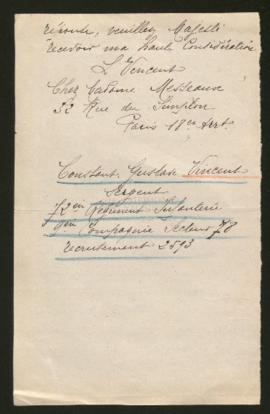 réponse, veuillez Majesté
recevoir ma Haute Considération
L Vincent
Chez Madame Messeaux
32 Rue du Simplon
Paris 18em Arrt.
Constant Gustave Vincent
Sergent
72em Régiment Infanterie
Compagnie Secteur 78
recrutement 2593